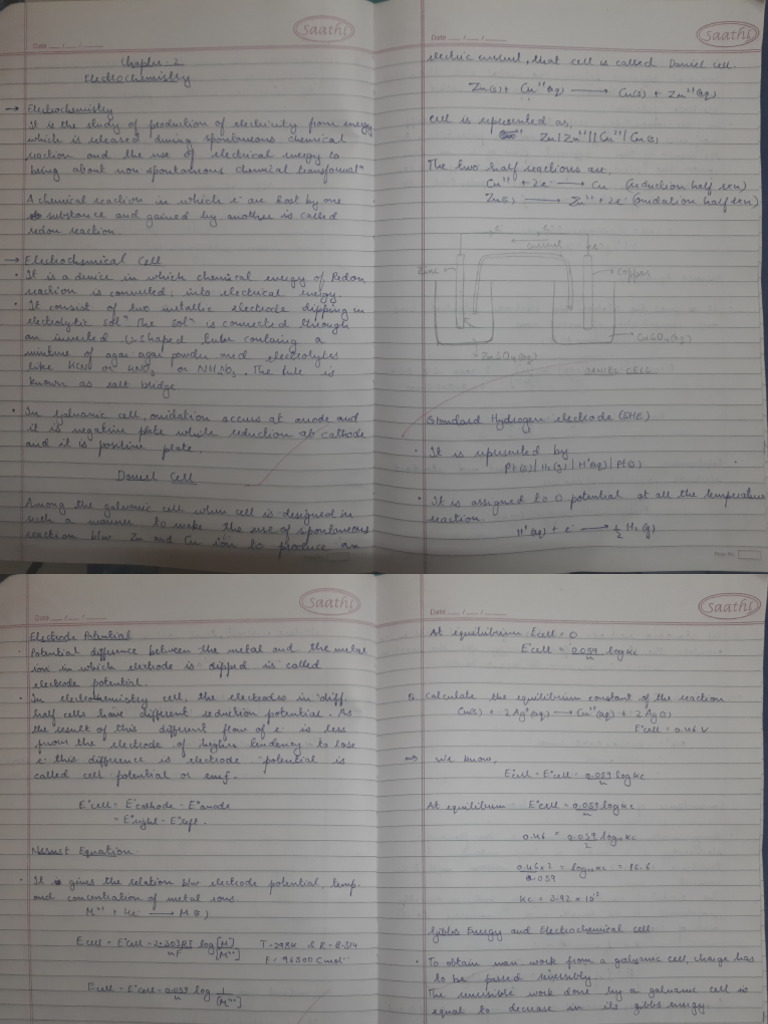 Saathi
Date
Chapter-2
Electrochemistry
→ Electrochemistry
It is the study of production of electricity from energy
which is released during spontaneous chemical
reaction and the use of electrical energy to
being about non spontaneous chemical transformatⁿ
A chemical reaction in which e⁻ are lost by one
substance and gained by another is called
redox reaction.
→ Electrochemical Cell
• It is a device in which chemical energy of Redox
reaction is converted into electrical energy.
• It consist of two metallic electrode dipping in
electrolytic solⁿ. The solⁿ is connected through
an inverted U-shaped tube containg a
mixture of agar agar powder and electrolytes
like KCl or KNO₃ or NH₄NO₃. The tube is
known as salt bridge
• In galvanic cell, oxidation occurs at anode and
it is negative plate while reduction at cathode
and it is positive plate.
Daniel Cell
Among the galvanic cell when cell is designed in
such a manner to make the use of spontaneous
reaction b/w Zn and Cu ion to produce an
Saathi
Date
electric current, that cell is called Daniel cell.
Zn(s) + Cu⁺⁺(aq) → Cu(s) + Zn⁺⁺(aq)
Cell is represented as,
Zn | Zn⁺⁺ || Cu⁺⁺ | Cu(s)
The two half reactions are,
Cu⁺⁺ + 2e⁻ → Cu (reduction half rxn)
Zn(s) → Zn⁺⁺ + 2e⁻ (oxidation half rxn)
e⁻
current
e⁻
Zinc
Copper
CuSO₄(aq)
ZnSO₄(aq)
DANIEL CELL
Standard Hydrogen electrode (SHE)
• It is represented by
Pt(s) | H₂(g) | H⁺(aq) | Pt(s)
• It is assigned to 0 potential at all the temperature
reaction
H⁺(aq) + e⁻ → ½ H₂(g)
Page No.
Saathi
Date
Electrode Potential
• Potential difference between the metal and the metal
ion in which electrode is dipped is called
electrode potential.
• In electrochemistry cell, the electrodes in diff.
half cells have different reduction potential. As
the result of this different flow of e⁻ is less
from the electrode of higher tendency to lose
e⁻ this difference is electrode potential is
called cell potential or emf.
E°cell = E°cathode - E°anode
= E°right - E°left.
Nernst Equation
• It is gives the relation b/w electrode potential, temp.
and concentration of metal ions.
Mⁿ⁺ + ne⁻ → M(s)
Ecell = E°cell - 2.303RT/nF log [M]/[Mⁿ⁺] T = 298K & R = 8.314
F = 96500 Cmol⁻¹
Ecell = E°cell - 0.059/n log 1/[Mⁿ⁺]
Saathi
Date
At equilibrium Ecell = 0
E°cell = 0.059/n log Kc
Q Calculate the equilibrium constant of the reaction
Cu(s) + 2Ag⁺(aq) → Cu⁺⁺(aq) + 2Ag(s)
E°cell = 0.46 V
⇒ We know,
Ecell = E°cell - 0.059/n log Kc
At equilibrium E°cell = 0.059/n log Kc
0.46 = 0.059/2 log₁₀ Kc
0.46×2/0.059 = log₁₀ Kc = 15.6
Kc = 3.92 × 10¹⁵
Gibbs Energy and Electrochemical cell:
• To obtain max work from a galvanic cell, charge has
to be passed reversibly.
The reversible work done by a galvanic cell is
equal to decrease in its gibbs energy.